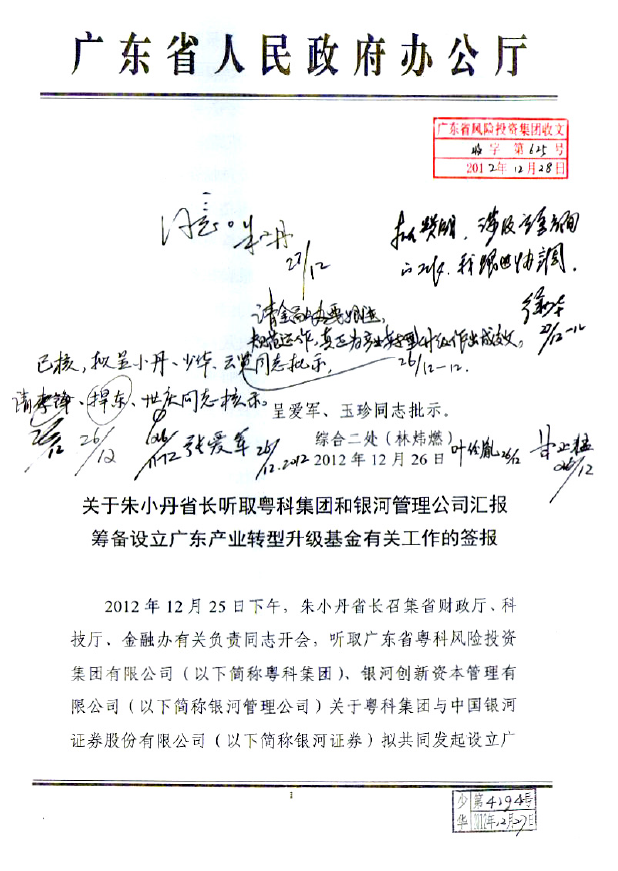 广东省人民政府办公厅
广东省风险投资集团收文
字 第625号
2012年12月28日
同意。朱小丹
27/12
27/12-12
26/12-12.
已核，拟呈小丹、少华、云贤同志批示。
请李锋、捍东、世庆同志核示。
呈爱军、玉珍同志批示。
26/12
张爱军 26/12.2012
综合二处（林炜燃）
2012年12月26日
26/12
26/12
关于朱小丹省长听取粤科集团和银河管理公司汇报
筹备设立广东产业转型升级基金有关工作的签报
2012年12月25日下午，朱小丹省长召集省财政厅、科
技厅、金融办有关负责同志开会，听取广东省粤科风险投资
集团有限公司（以下简称粤科集团）、银河创新资本管理有
限公司（以下简称银河管理公司）关于粤科集团与中国银河
证券股份有限公司（以下简称银河证券）拟共同发起设立广
1
少 第4194号
华 2012年12月27日